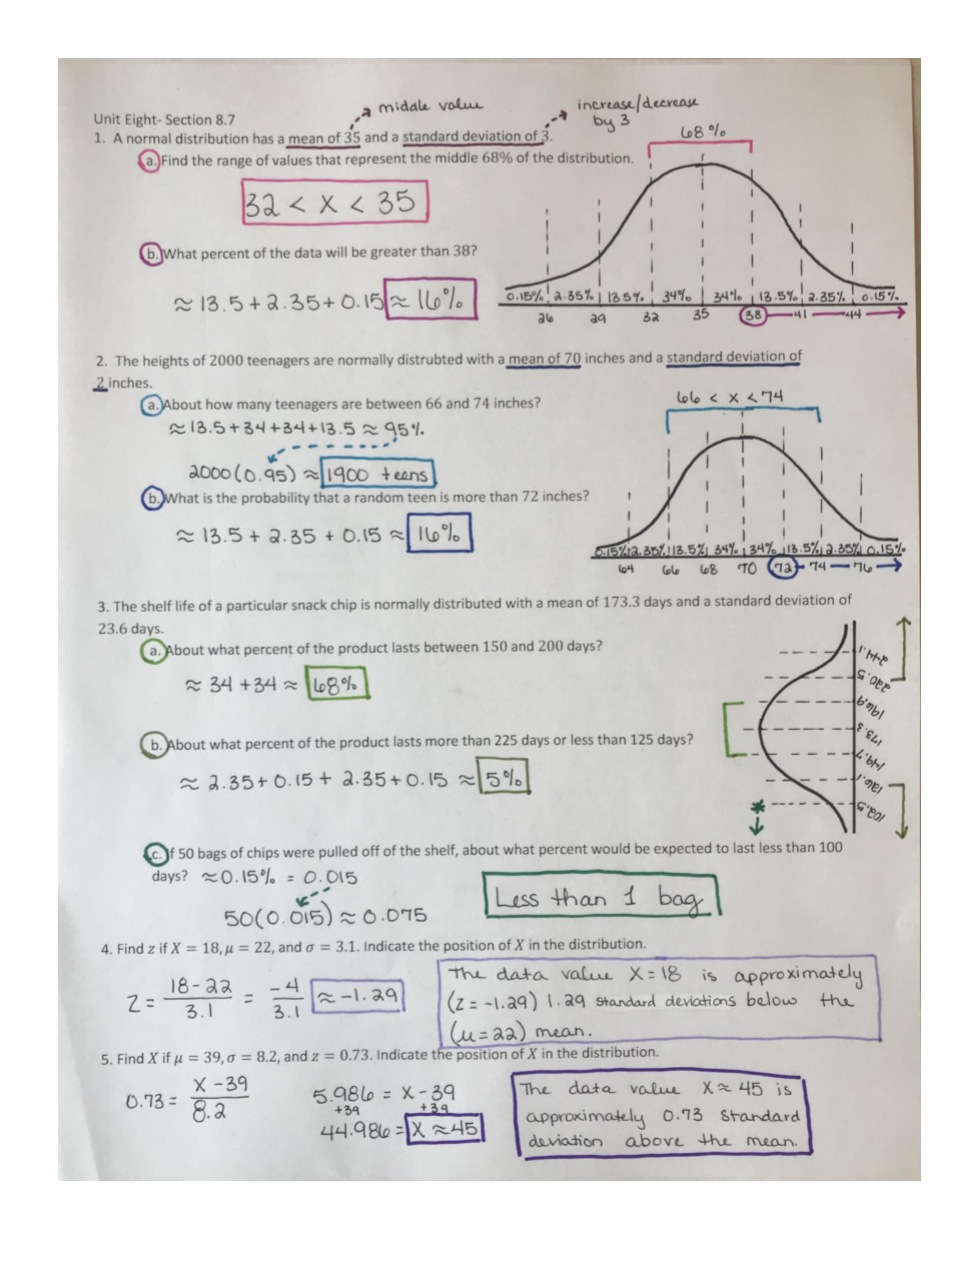 middle value
increase/decrease
by 3
68%
Unit Eight- Section 8.7
1. A normal distribution has a mean of 35 and a standard deviation of 3.
a. Find the range of values that represent the middle 68% of the distribution.
32 < X < 35
b. What percent of the data will be greater than 38?
≈ 13.5 + 2.35 + 0.15 ≈ 16%
0.15% 2.35% 13.5% 34% 34% 13.5% 2.35% 0.15%
26 29 32 35 38 41 44
2. The heights of 2000 teenagers are normally distrubted with a mean of 70 inches and a standard deviation of
2 inches.
66 < X < 74
a. About how many teenagers are between 66 and 74 inches?
≈ 13.5 + 34 + 34 + 13.5 ≈ 95%
2000(0.95) ≈ 1900 teens
b. What is the probability that a random teen is more than 72 inches?
≈ 13.5 + 2.35 + 0.15 ≈ 16%
0.15% 2.35% 13.5% 34% 34% 13.5% 2.35% 0.15%
64 66 68 70 72 74 76
3. The shelf life of a particular snack chip is normally distributed with a mean of 173.3 days and a standard deviation of
23.6 days.
a. About what percent of the product lasts between 150 and 200 days?
≈ 34 + 34 ≈ 68%
244.1
220.5
196.9
173.3
149.7
126.1
102.5
b. About what percent of the product lasts more than 225 days or less than 125 days?
≈ 2.35 + 0.15 + 2.35 + 0.15 ≈ 5%
*
c. If 50 bags of chips were pulled off of the shelf, about what percent would be expected to last less than 100
days? ≈ 0.15% = 0.015
50(0.015) ≈ 0.075
Less than 1 bag
4. Find z if X = 18, μ = 22, and σ = 3.1. Indicate the position of X in the distribution.
Z = 18-22/3.1 = -4/3.1 ≈ -1.29
The data value X = 18 is approximately
(Z = -1.29) 1.29 standard deviations below the
(μ = 22) mean.
5. Find X if μ = 39, σ = 8.2, and z = 0.73. Indicate the position of X in the distribution.
0.73 = X - 39/8.2
5.986 = X - 39
+39 +39
44.986 = X ≈ 45
The data value X ≈ 45 is
approximately 0.73 standard
deviation above the mean.